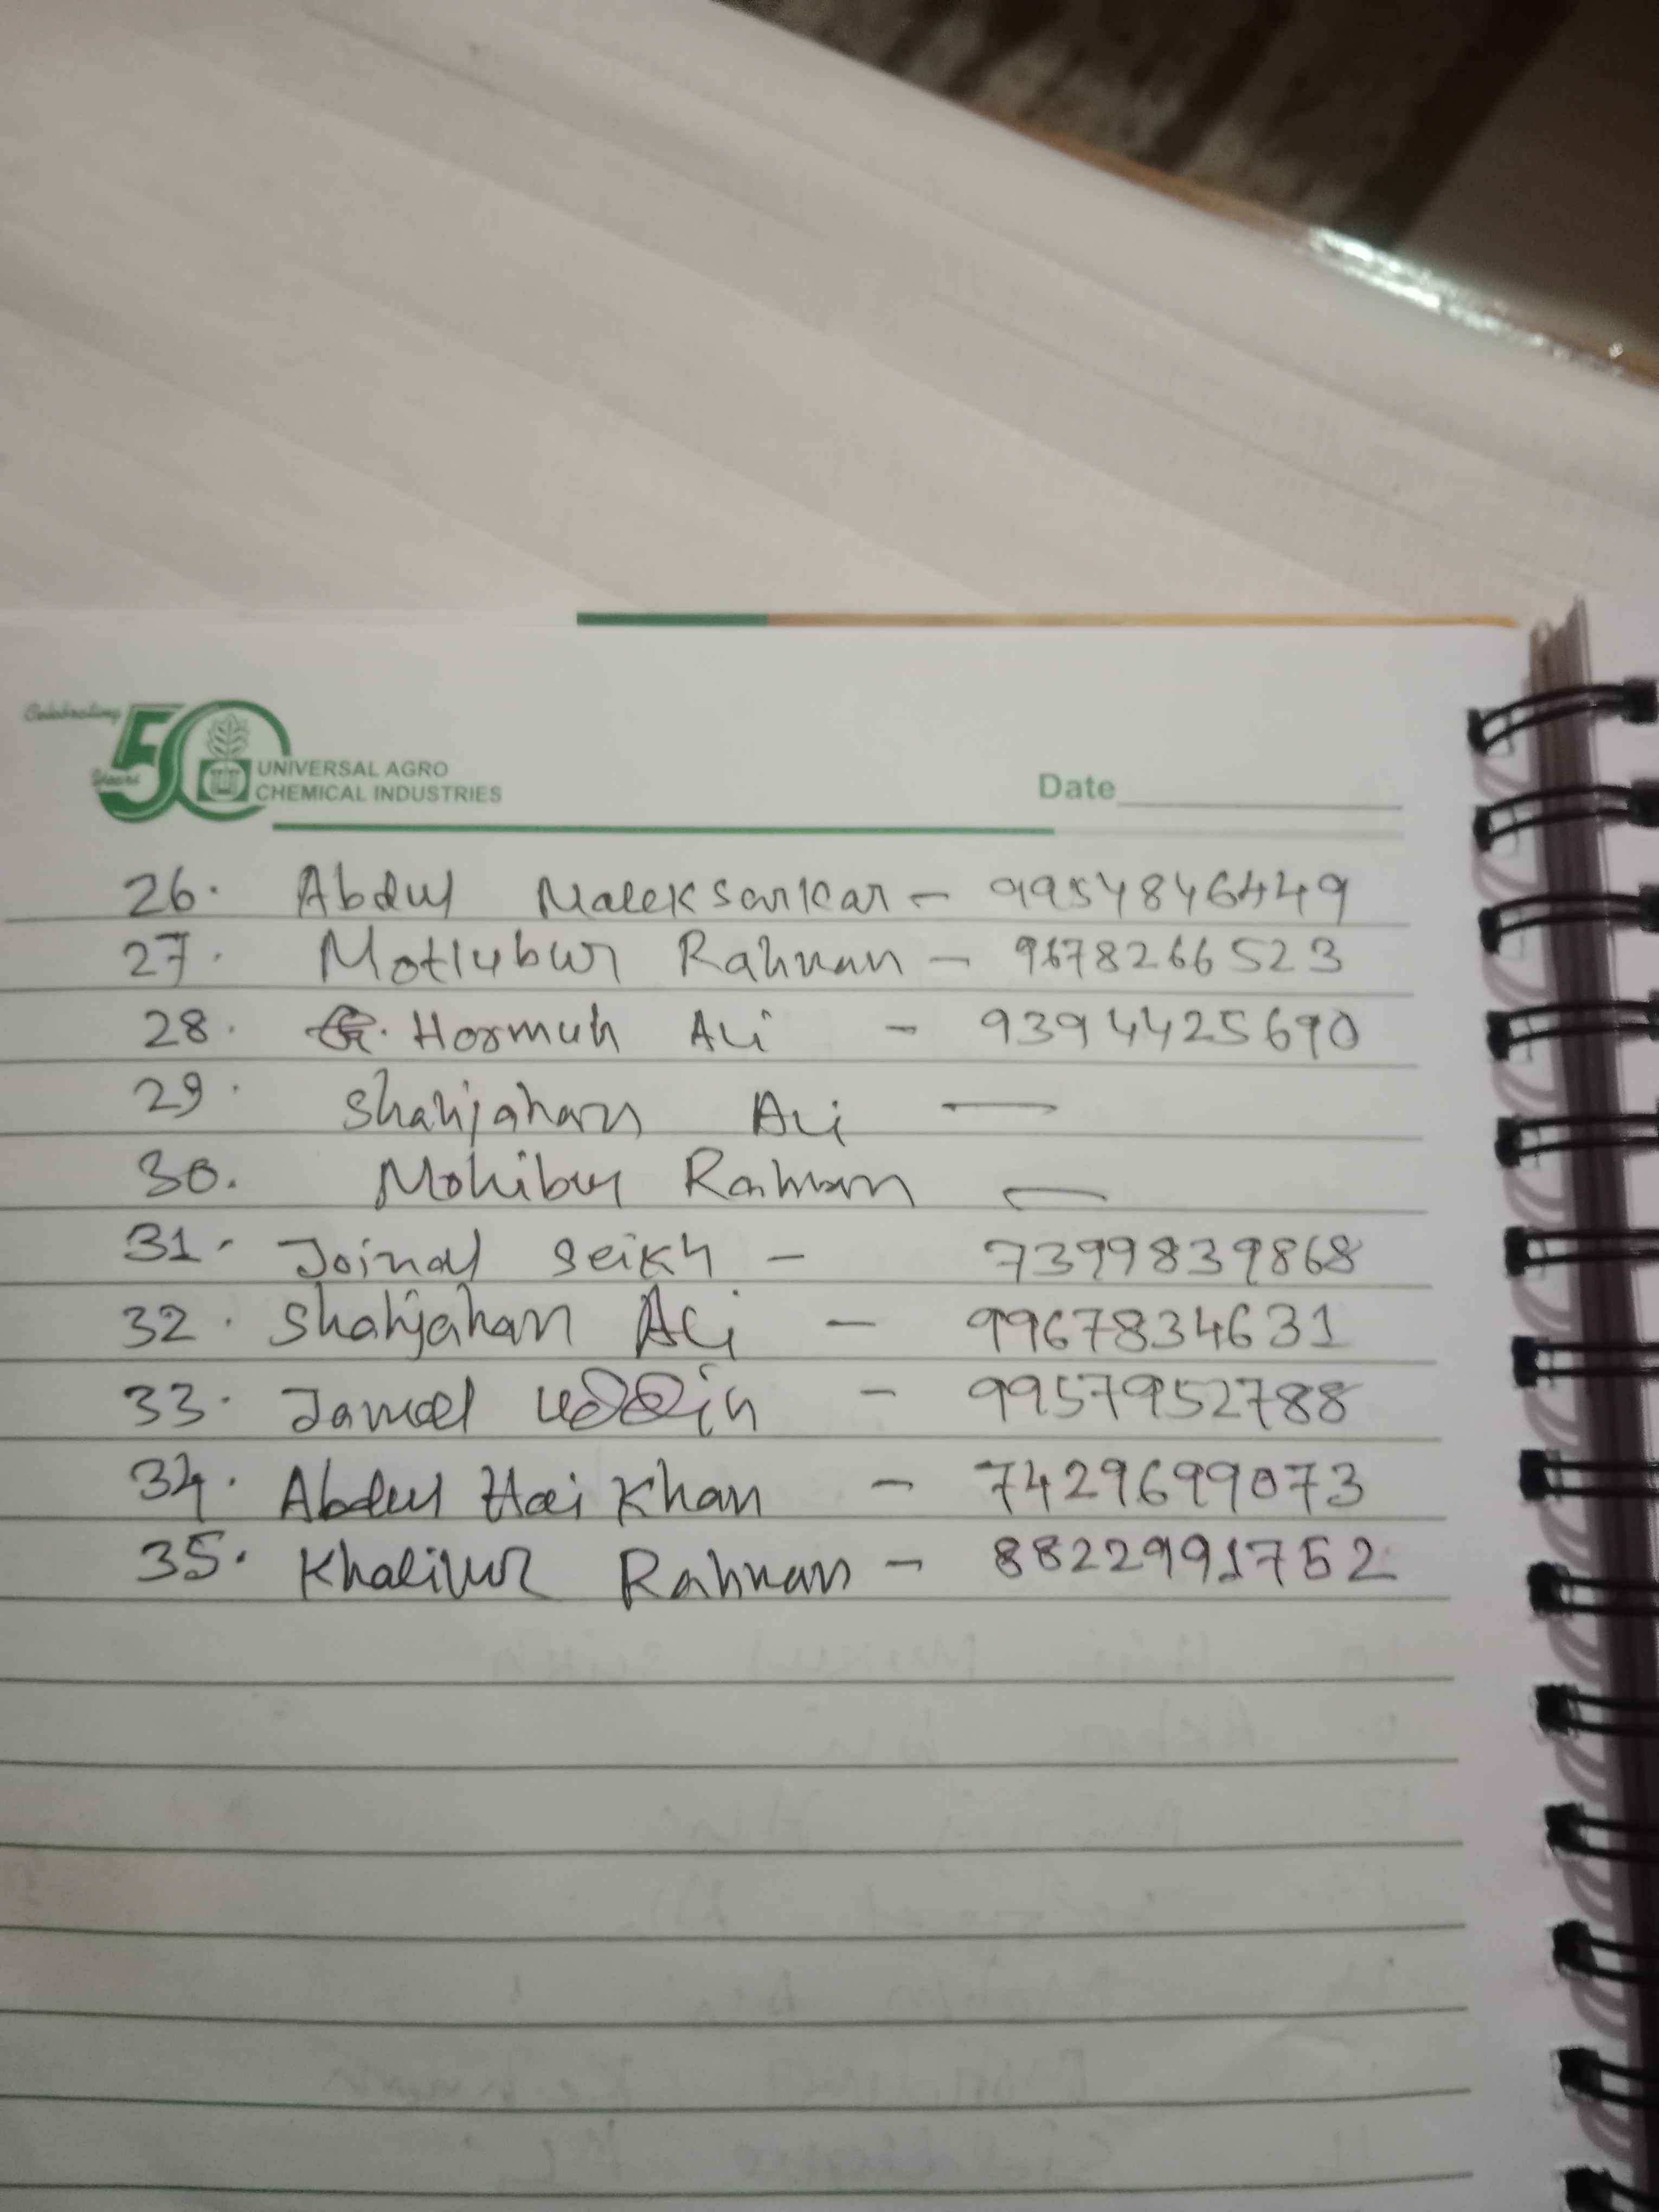 Celebrating
50
Years
UNIVERSAL AGRO
CHEMICAL INDUSTRIES
Date
26. Abdul Malek Sarkar - 9954846449
27. Motlubur Rahman - 9678266523
28. Hormuh Ali - 9394425690
29. Shahjahan Ali -
30. Mohibur Rahman -
31. Joinal Seikh - 7399839868
32. Shahjahan Ali - 9967834631
33. Jamal Uddin - 9957952788
34. Abdul Hai Khan - 7429699073
35. Khalilur Rahman - 8822991752